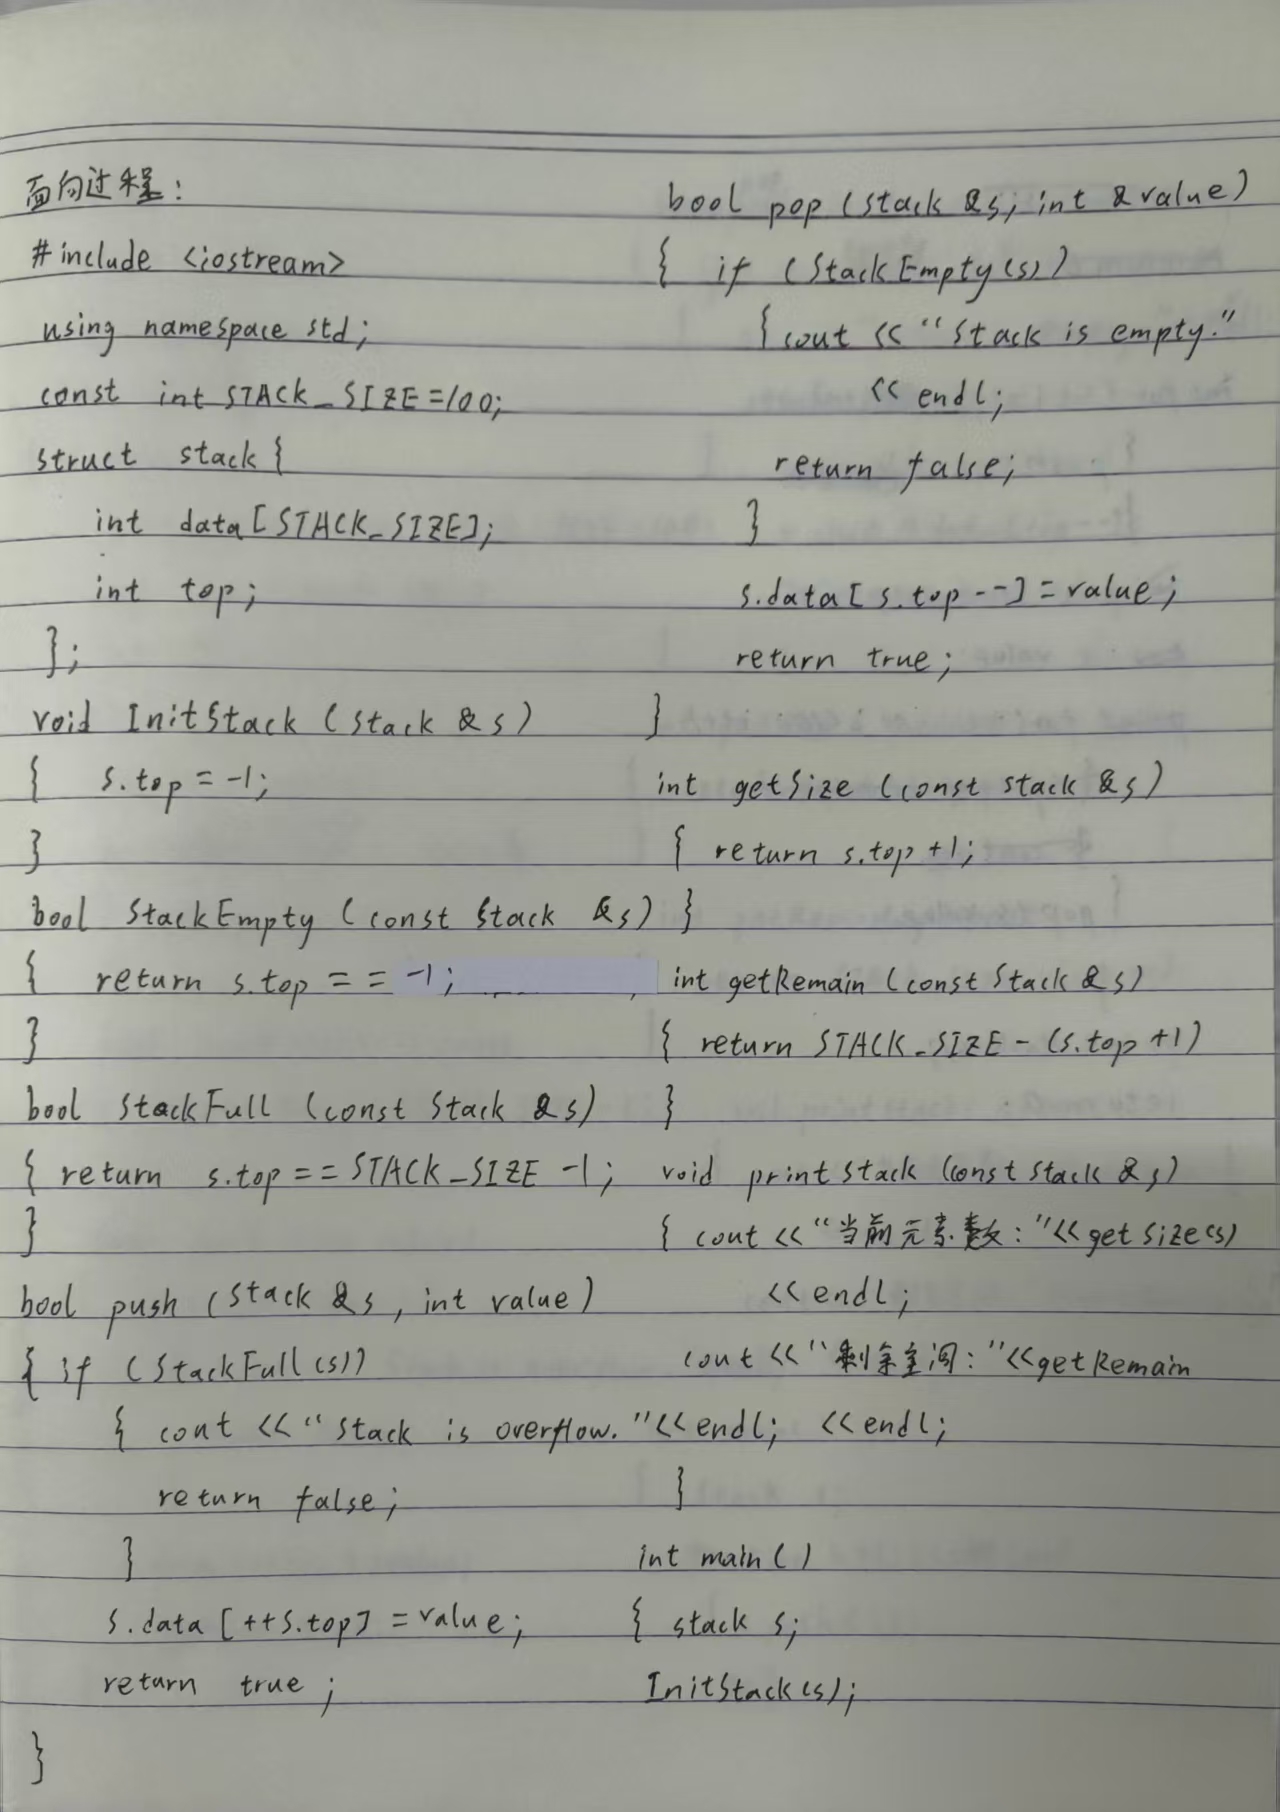 面向过程:
#include <iostream>
using namespace std;
const int STACK_SIZE=100;
struct stack{
int data[STACK_SIZE];
int top;
};
void InitStack (stack &s)
{ s.top = -1;
}
bool StackEmpty (const stack &s)
{ return s.top == -1;
}
bool StackFull (const stack &s)
{ return s.top == STACK_SIZE -1;
}
bool push (stack &s, int value)
{ if (StackFull(s))
{ cout << "stack is overflow." << endl;
return false;
}
s.data [++s.top] = value;
return true;
}
bool pop (stack &s, int &value)
{ if (StackEmpty(s))
{ cout << "stack is empty."
<< endl;
return false;
}
s.data[s.top--] = value;
return true;
}
int getSize (const stack &s)
{ return s.top +1;
}
int getRemain (const stack &s)
{ return STACK_SIZE - (s.top +1)
}
void printstack (const stack &s)
{ cout << "当前元素数:"<< getSize(s)
<< endl;
cout << "剩余空间:"<<getRemain
<<endl;
}
int main()
{ stack s;
InitStack(s);